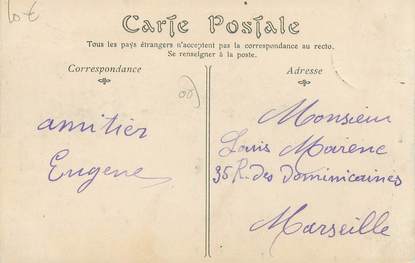 10 €
Carte Postale
Tous les pays étrangers n'acceptent pas la correspondance au recto.
Se renseigner à la poste.
Correspondance
amitier
Eugene
Adresse
Monsieur
Louis Marenc
35 R. des Dominicaines
Marseille